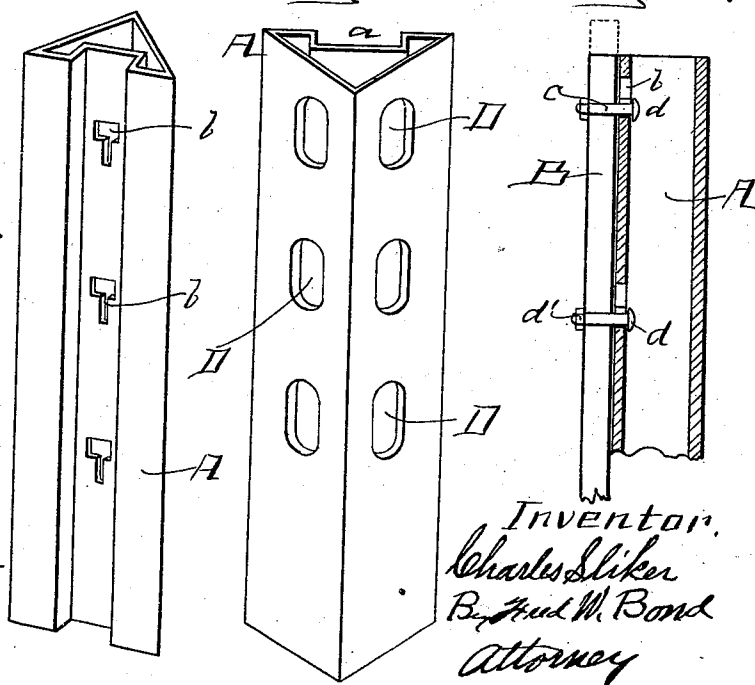 A
a
b
D
b
D
A
D
c
b
d
B
A
d'
d
Inventor.
Charles Sliker
By Fred W. Bond
Attorney